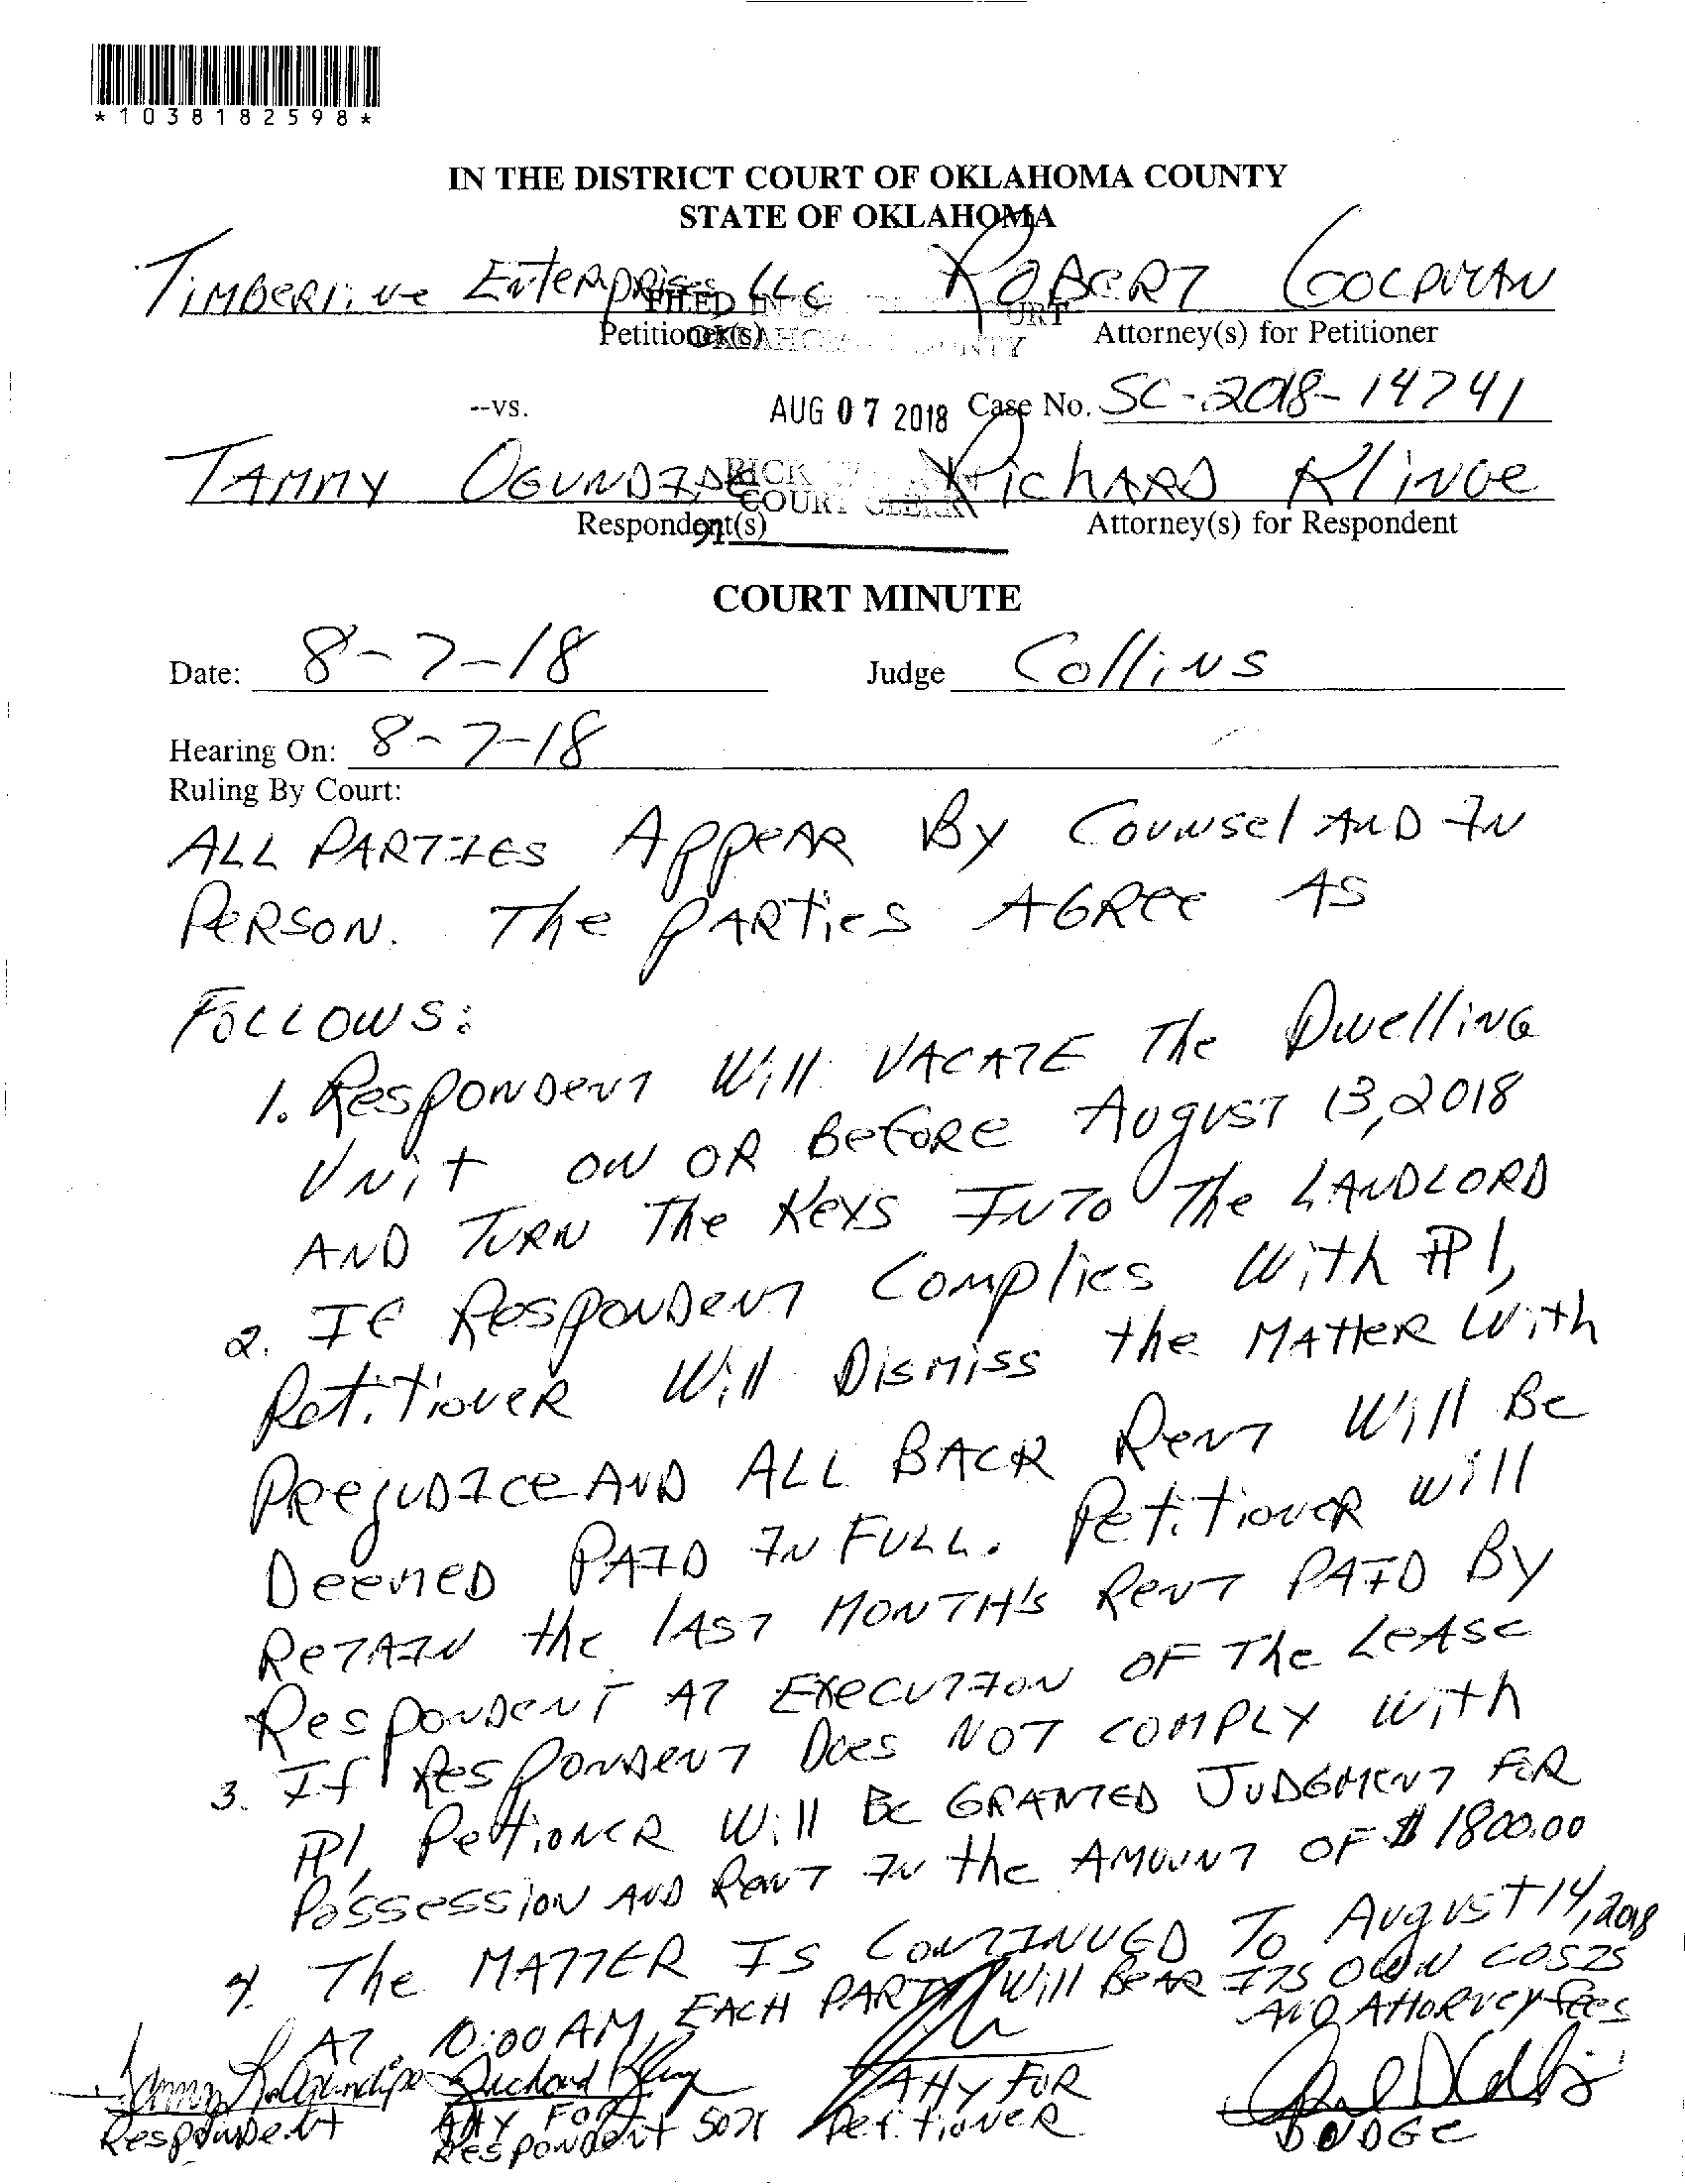 *1038182598*
IN THE DISTRICT COURT OF OKLAHOMA COUNTY
STATE OF OKLAHOMA
TIMBERLINE ENTERPRISES LLC ROBERT GOLDMAN
FILED IN COURT
Petitioner(s) Attorney(s) for Petitioner
OKLAHOMA COUNTY
--vs. AUG 07 2018 Case No. SC-2018-14741
TAMMY OGUNDIPE RICHARD KLINGE
RICK
COURT CLERK
Respondent(s) Attorney(s) for Respondent
91
COURT MINUTE
Date: 8-7-18 Judge Collins
Hearing On: 8-7-18
Ruling By Court:
ALL PARTIES APPEAR BY COUNSEL AND IN
PERSON. The PARTIES AGREE AS
FOLLOWS:
1. RESPONDENT Will VACATE The Dwelling
UNIT ON OR BEFORE AUGUST 13, 2018
AND TURN The KEYS INTO The LANDLORD
2. IF RESPONDENT COMPLIES WITH ¶1,
PETITIONER Will DISMISS the MATTER WITH
PREJUDICE AND ALL BACK RENT WILL BE
DEEMED PAID IN FULL. PETITIONER will
RETAIN the LAST MONTH'S RENT PAID BY
RESPONDENT AT EXECUTION OF The LEASE
3. If RESPONDENT DOES NOT COMPLY WITH
¶1, PETTIONER Will BE GRANTED JUDGMENT FOR
POSSESSION AND RENT IN the AMOUNT OF $1800.00
4. The MATTER IS CONTINUED TO AUGUST 14, 2018
AT 10:00 AM, EACH PARTY Will BEAR ITS OWN COSTS
AND ATTORNEY FEES
Tammy Ogundipe Richard Kling
Respondent ATTY FOR Respondent 5021 ATTY FOR Petitioner JUDGE